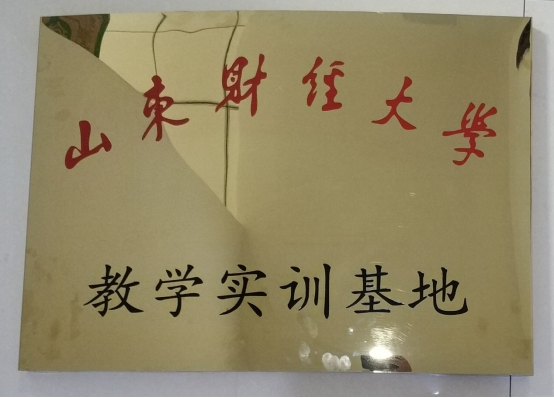 山东财经大学
教学实训基地